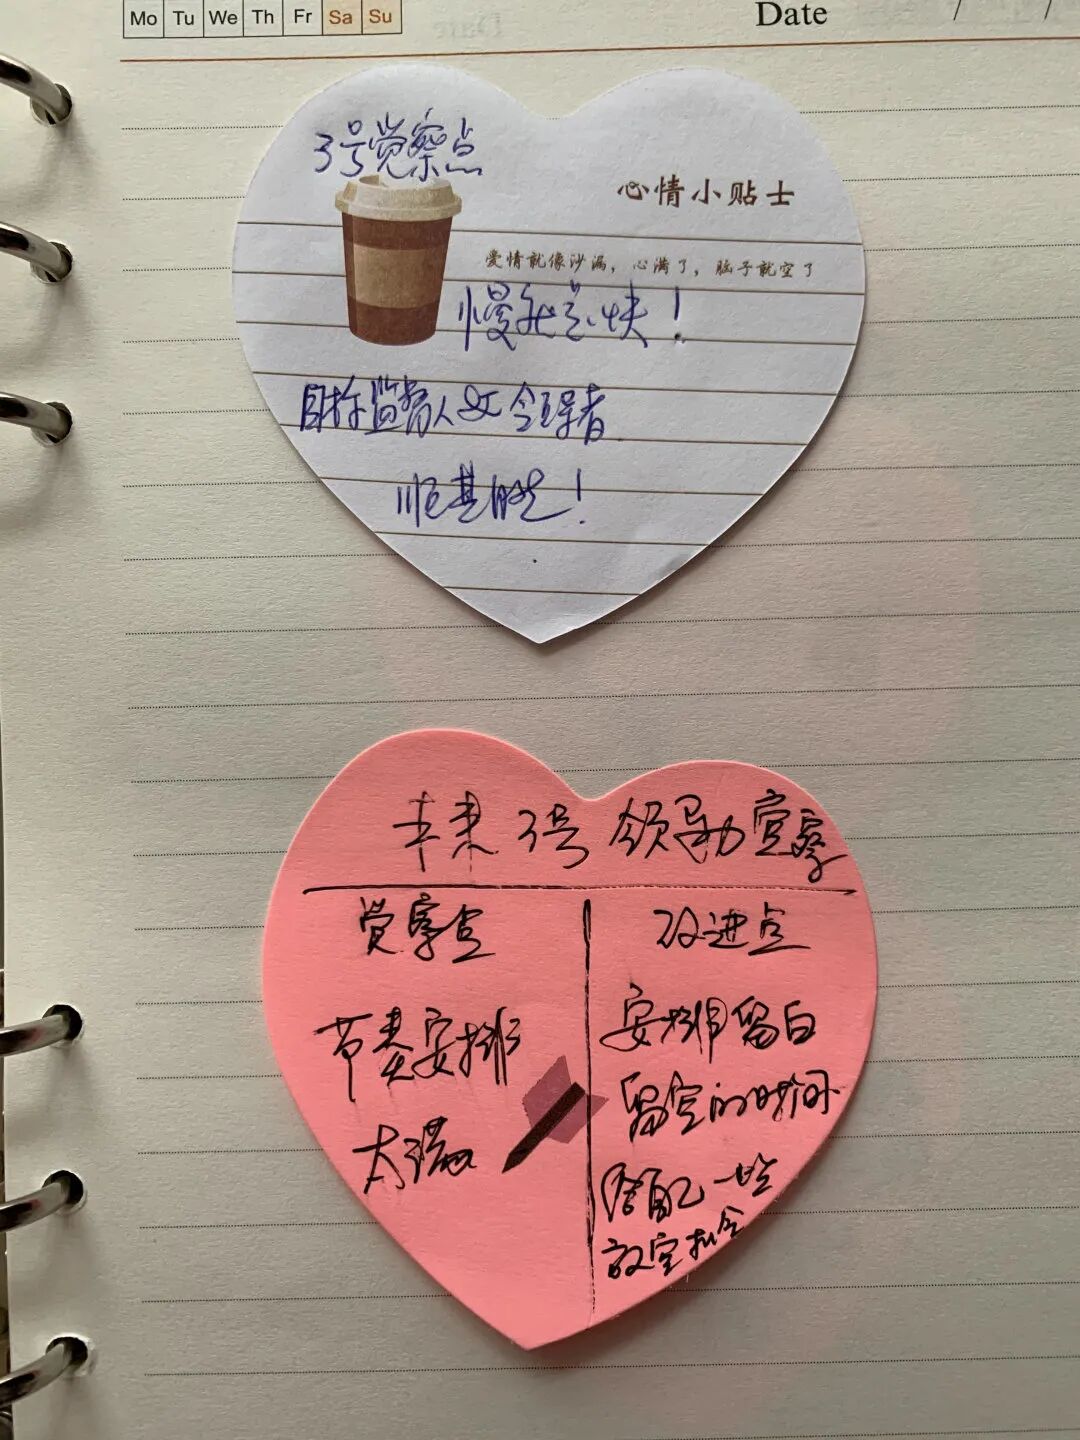 Mo Tu We Th Fr Sa Su
Date / /
3号觉察点
心情小贴士
爱情就像沙漏，心满了，脑子就空了
慢就是快！
目标 监督人 领导者
顺其自然！
丰素 3号 领导力 觉察
觉察点
改进点
节奏安排
太满
安排留白
留空的时间
搭配一些
放空